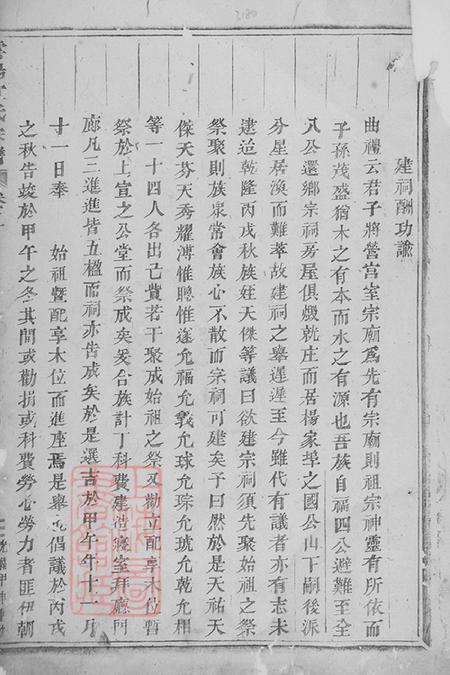 建祠酬功論
曲禮云君子將營宮室宗廟爲先有宗廟則祖宗神靈有所依而
子孫茂盛猶木之有本而水之有源也吾族自福四公避難至全
八公還鄉宗祠房屋俱燬就庄而居楊家埠之國公山下嗣後派
分星居渙而難萃故建祠之舉遲遲至今雖代有議者亦有志未
逮迨乾隆丙戌秋族姪天傑等議曰欲建宗祠須先聚始祖之祭
祭聚則族眾常會族心不散而宗祠可建矣予曰然於是天祐天
傑天芬天秀耀溥惟聰惟遂允福允戭允球允琮允琥允乾允相
等一十四人各出己貲若干聚成始祖之祭又勸立配享木位暫
祭於上宣之公堂而祭成矣爰合族計丁科費建造寢室拜廳門
廊凡三進進皆五楹而祠亦告成矣於是選吉於甲午年十一月
十一日奉 始祖曁配享木位而進座焉是舉也倡議於丙戌
之秋告竣於甲午之冬其間或勸捐或科費勞心勞力者匪伊朝